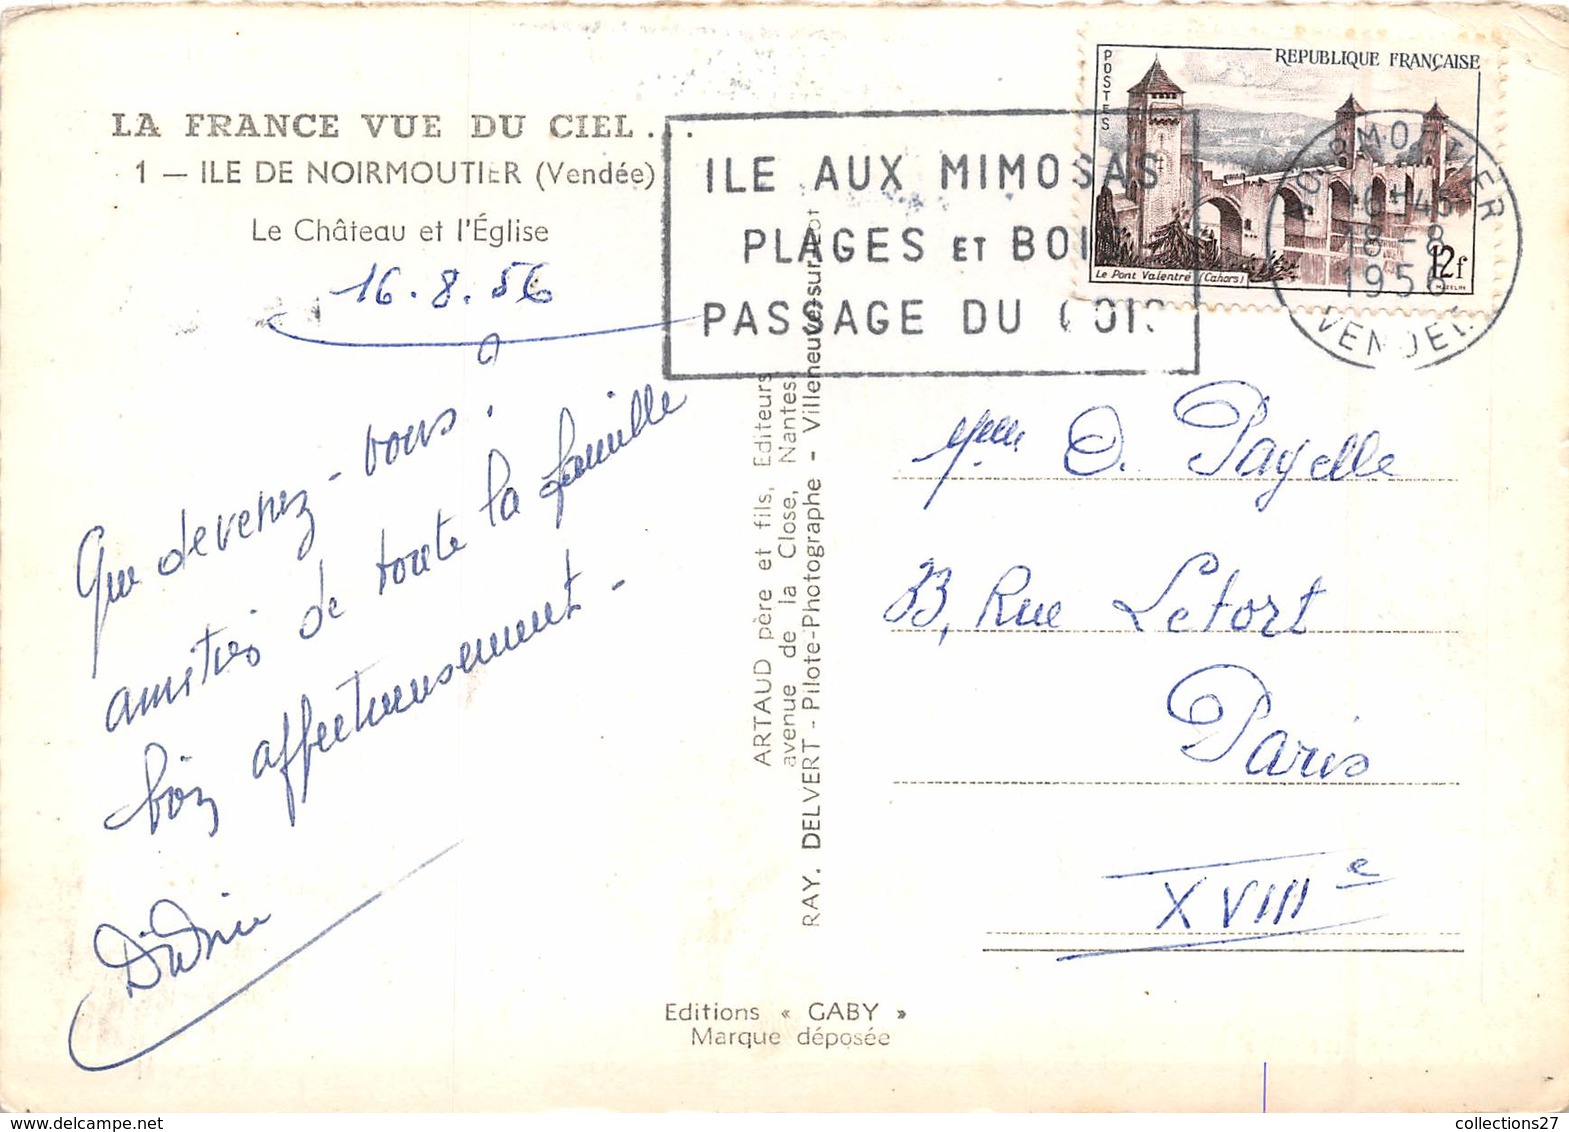 LA FRANCE VUE DU CIEL...
1 — ILE DE NOIRMOUTIER (Vendée)
Le Château et l'Église
16.8.56
Que devenez-vous?
amitiés de toute la famille
bien affectueusement -
ILE AUX MIMOSAS
PLAGES ET BOIS
PASSAGE DU GOIS
POSTES
REPUBLIQUE FRANÇAISE
Le Pont Valentré (Cahors)
12f
MAZELIN
NOIRMOUTIER
16-45
18-8
1956
VENDEE
ARTAUD père et fils, Editeurs
avenue de la Close, Nantes
RAY. DELVERT - Pilote-Photographe - Villeneuve-sur-Lot
Mme O. Payelle
33, Rue Letort
Paris
XVIIIe
Editions « GABY »
Marque déposée
collections27